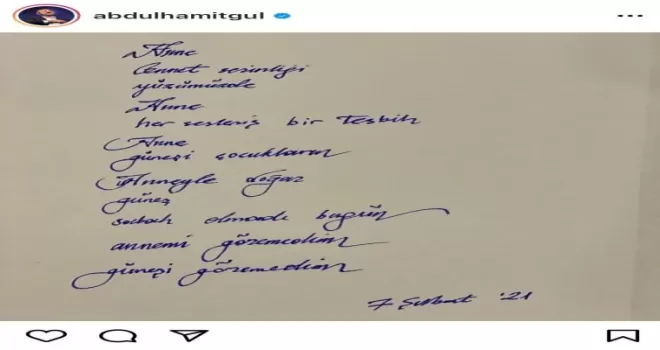 abdulhamitgul
Anne
Cennet serinliği
yüzümüzde
Anne
her sesleniş bir tesbih
Anne
güneşi çocukların
Anneyle doğar
güneş
sabah olmadı bugün
annemi göremedim
güneşi göremedim
7 Şubat '21